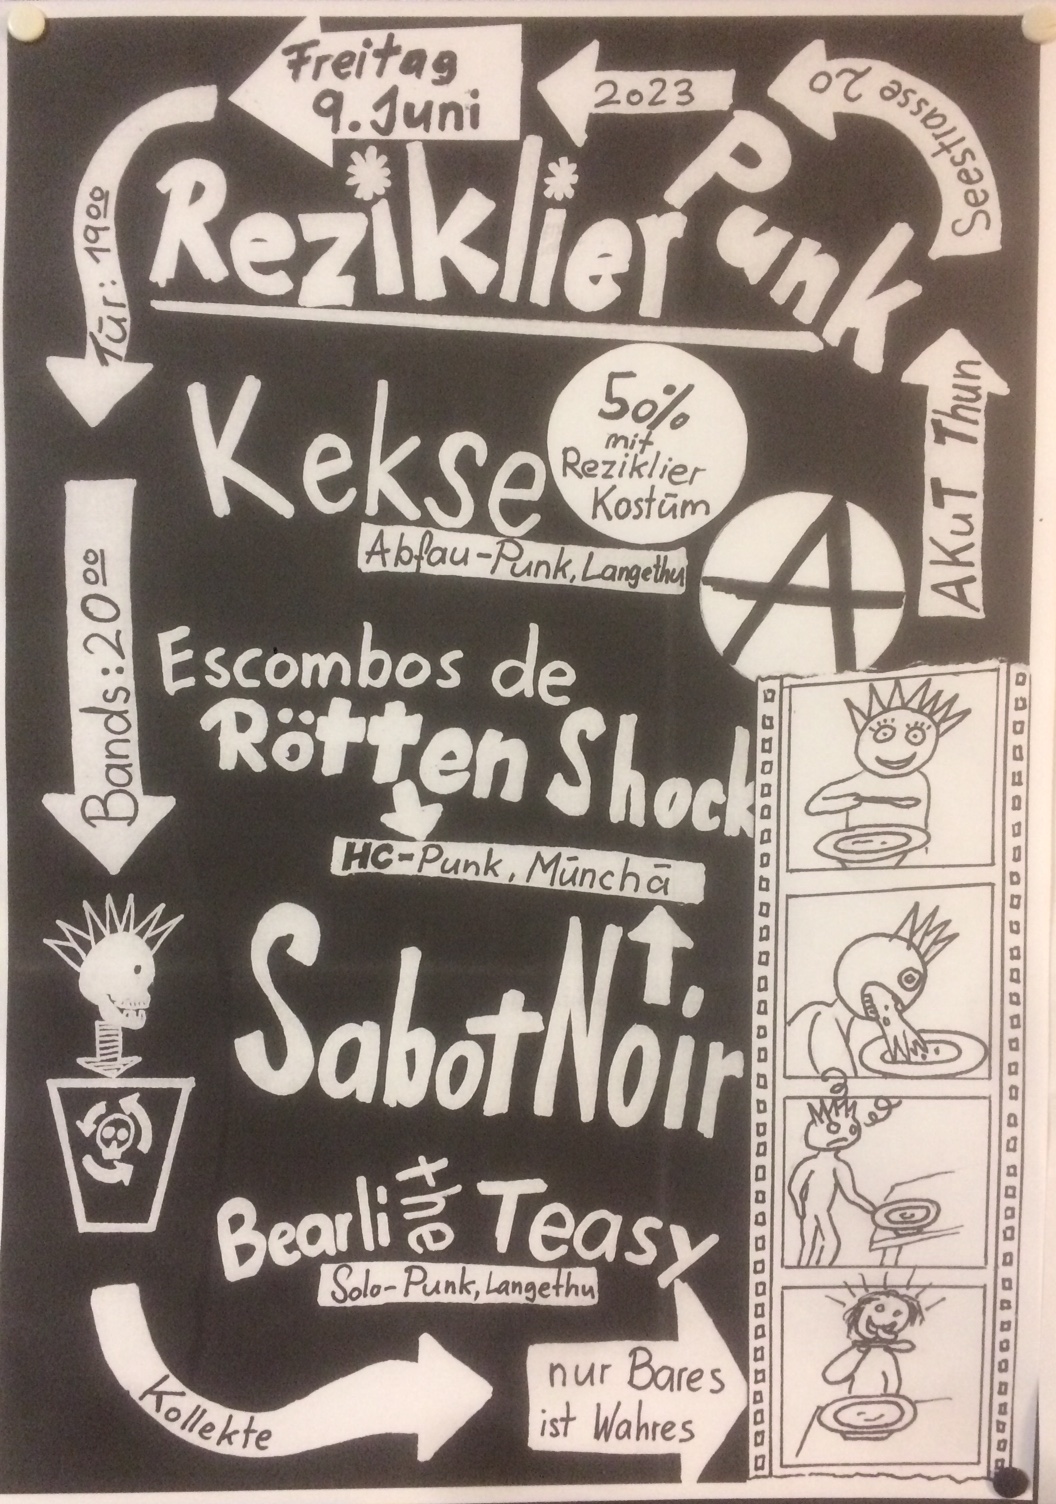 Freitag
9. Juni
2023
Seestrasse 20
AKuT Thun
Reziklier Punk
Tür: 19⁰⁰
Kekse
50%
mit
Reziklier
Kostüm
Abfau-Punk, Langethu
A
Bands: 20⁰⁰
Escombos de
Rötten Shock
HC-Punk, Münchä
Sabot Noir
Bearli the Teasy
Solo-Punk, Langethu
Kollekte
nur Bares
ist Wahres